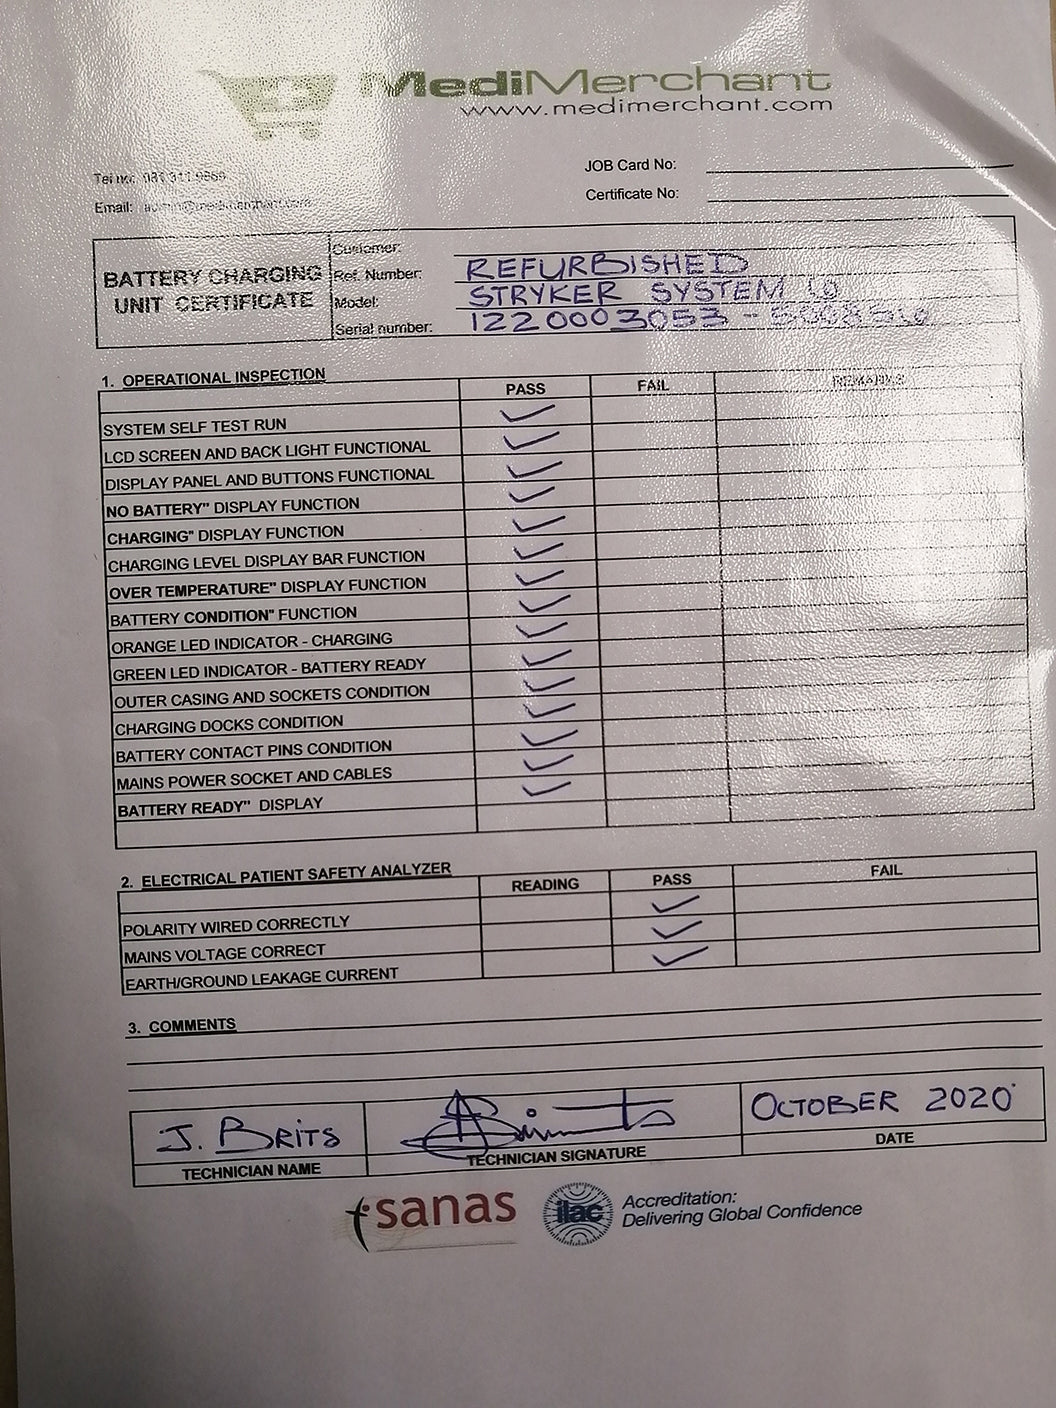 MediMerchant
www.medimerchant.com
JOB Card No:
Tel no: 081 311 9869
Certificate No:
Email: admin@medimerchant.com
BATTERY CHARGING
UNIT CERTIFICATE
Customer:
Ref. Number: REFURBISHED
Model: STRYKER SYSTEM
Serial number: 1220003053 -
1. OPERATIONAL INSPECTION
PASS FAIL REMARKS
SYSTEM SELF TEST RUN ✓
LCD SCREEN AND BACK LIGHT FUNCTIONAL ✓
DISPLAY PANEL AND BUTTONS FUNCTIONAL ✓
NO BATTERY" DISPLAY FUNCTION ✓
CHARGING" DISPLAY FUNCTION ✓
CHARGING LEVEL DISPLAY BAR FUNCTION ✓
OVER TEMPERATURE" DISPLAY FUNCTION ✓
BATTERY CONDITION" FUNCTION ✓
ORANGE LED INDICATOR - CHARGING ✓
GREEN LED INDICATOR - BATTERY READY ✓
OUTER CASING AND SOCKETS CONDITION ✓
CHARGING DOCKS CONDITION ✓
BATTERY CONTACT PINS CONDITION ✓
MAINS POWER SOCKET AND CABLES ✓
BATTERY READY" DISPLAY ✓
2. ELECTRICAL PATIENT SAFETY ANALYZER
READING PASS FAIL
POLARITY WIRED CORRECTLY ✓
MAINS VOLTAGE CORRECT ✓
EARTH/GROUND LEAKAGE CURRENT ✓
3. COMMENTS
J. BRITS
OCTOBER 2020
TECHNICIAN NAME
TECHNICIAN SIGNATURE
DATE
sanas
ilac
Accreditation:
Delivering Global Confidence